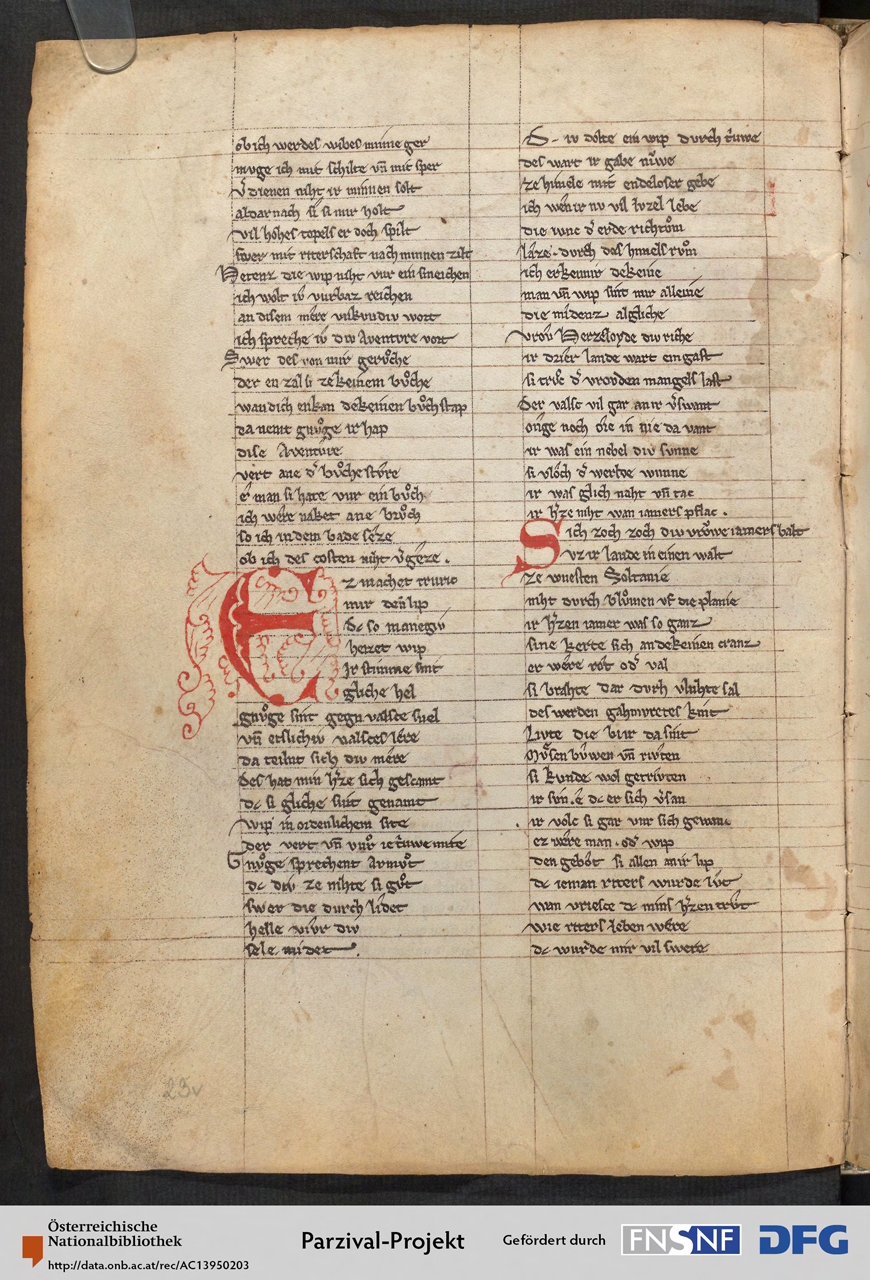 ob ich werdes wibes minne ger
muge ich mit schilte vn̄ mit sper
v᷑dienen niht ir minnen solt
al dar nach si si mir holt
vil hohes topels er doch spilt
swer mit riterschaft nach minnen zilt
Hetenz die wip niht vur ein smeichen
ich wolt iv vurbaz reichen
an disem mere vnkvndiv wort
ich spreche iv div Aventvre vort
Swer des von mir gerůche
der en zal si ze keinem bůche
wan dich enkan dekeinen bůchstap
da nemt gnůge ir hap
dise Aventvre
vert ane d᷑ bůche stivre
e᷑ man si hate vur ein bůch
ich were naket ane brůch
so ich in dem bade seze
ob ich des costen niht v᷑geze .
Ez machet trvric
mir den lip
dc so manegiv
heizet wip
Ir stimme sint
gliche hel
gnůge sint gegn valsce snel
vn̄ etslichiv valsces lere
da teilnt sich div mere
des hat min h᷑ze sich gescamt
dc si gliche sint genamt
wip in ordenlichem site
der vert vn̄ vůr ie t᷑uwe mite
Gnůge sprechent Armůt
dc div ze nihte si gůt
swer die durch lidet
helle vivr div
sele midet .
D - iv dolte ein wip durch t᷑uwe
des wart ir gabe nůwe
ze himele mit endeloser gebe
ich wen ir nv vil lvzel lebe
die ivnc d᷑ erde richtům
laze . durch des himels rům
ich erkenne dekeine
man vn̄ wip sint mir alleine
die midenz algliche
vroů Herzeloyde div riche
ir drier lande wart ein gast
si trůc d᷑ vrovden mangels last
der valsc vil gar an ir v᷑swant
ouge noch ore in nie da vant
ir was ein nebel div svnne
si vlôch d᷑ werlde wnnne
ir was glich naht vn̄ tac
ir h᷑ze niht wan iamers pflac .
Sich zoch zoch div vrôwe iamers balt
vz ir lande in einen walt
ze wuesten Soltanie
niht durch blůmen vf die planie
ir h᷑zen iamer was so ganz
sine kerte sich an dekeinen cranz
er were rôt od᷑ val
si brahte dar durh vluhte sal
des werden gahmvretes kint
livte die bi ir da sint
mv̊sen bvwen vn̄ rivten
si kvnde wol getrivten
ir svn . e dc er sich v᷑san
ir volc si gar vur sich gewan .
ez were man . od᷑ wip
den gebôt si allen an ir lip
dc ieman riters wurde lůt
wan vriesce dc mins h᷑zen trůt
wie riters leben were
dc wurde mir vil swere
23v
Österreichische
Nationalbibliothek
http://data.onb.ac.at/rec/AC13950203
Parzival-Projekt
Gefördert durch
FNSNF
DFG